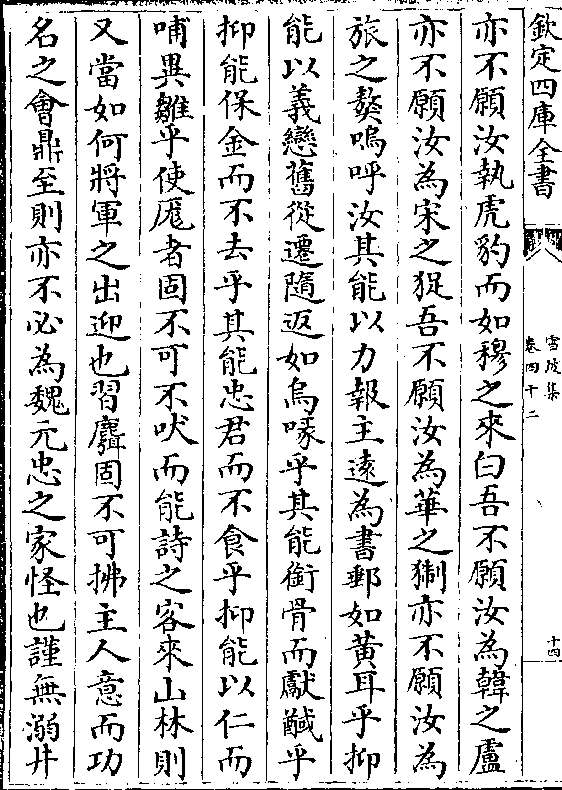 欽定四庫全書
雪坡集
卷四十二
十四
亦不願汝執虎豹而如穆之來白吾不願汝為韓之盧
亦不願汝為宋之㹱吾不願汝為華之猘亦不願汝為
旅之獒嗚呼汝其能以力報主遠為書郵如黄耳乎抑
能以義戀舊從遷隨返如烏喙乎其能銜骨而獻醎乎
抑能保金而不去乎其能忠君而不食乎抑能以仁而
哺異雛乎使厖者固不可不吠而能詩之客來山林則
又當如何將軍之出迎也習麛固不可拂主人意而功
名之會鼎至則亦不必為魏元忠之家怪也謹無溺井